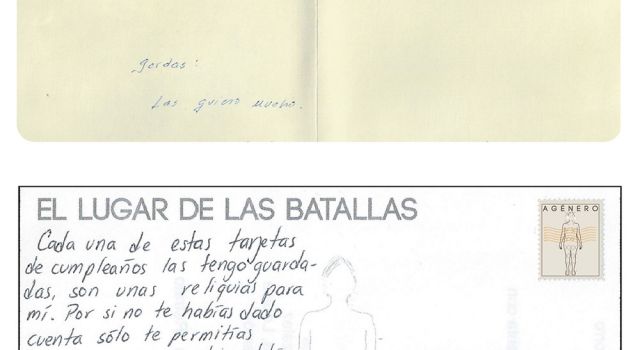 gordas:
Las quiero mucho.
EL LUGAR DE LAS BATALLAS
AGÉNERO
Cada una de estas tarjetas
de cumpleaños las tengo guarda-
das, son unas reliquias para
mí. Por si no te habías dado
cuenta sólo te permitías